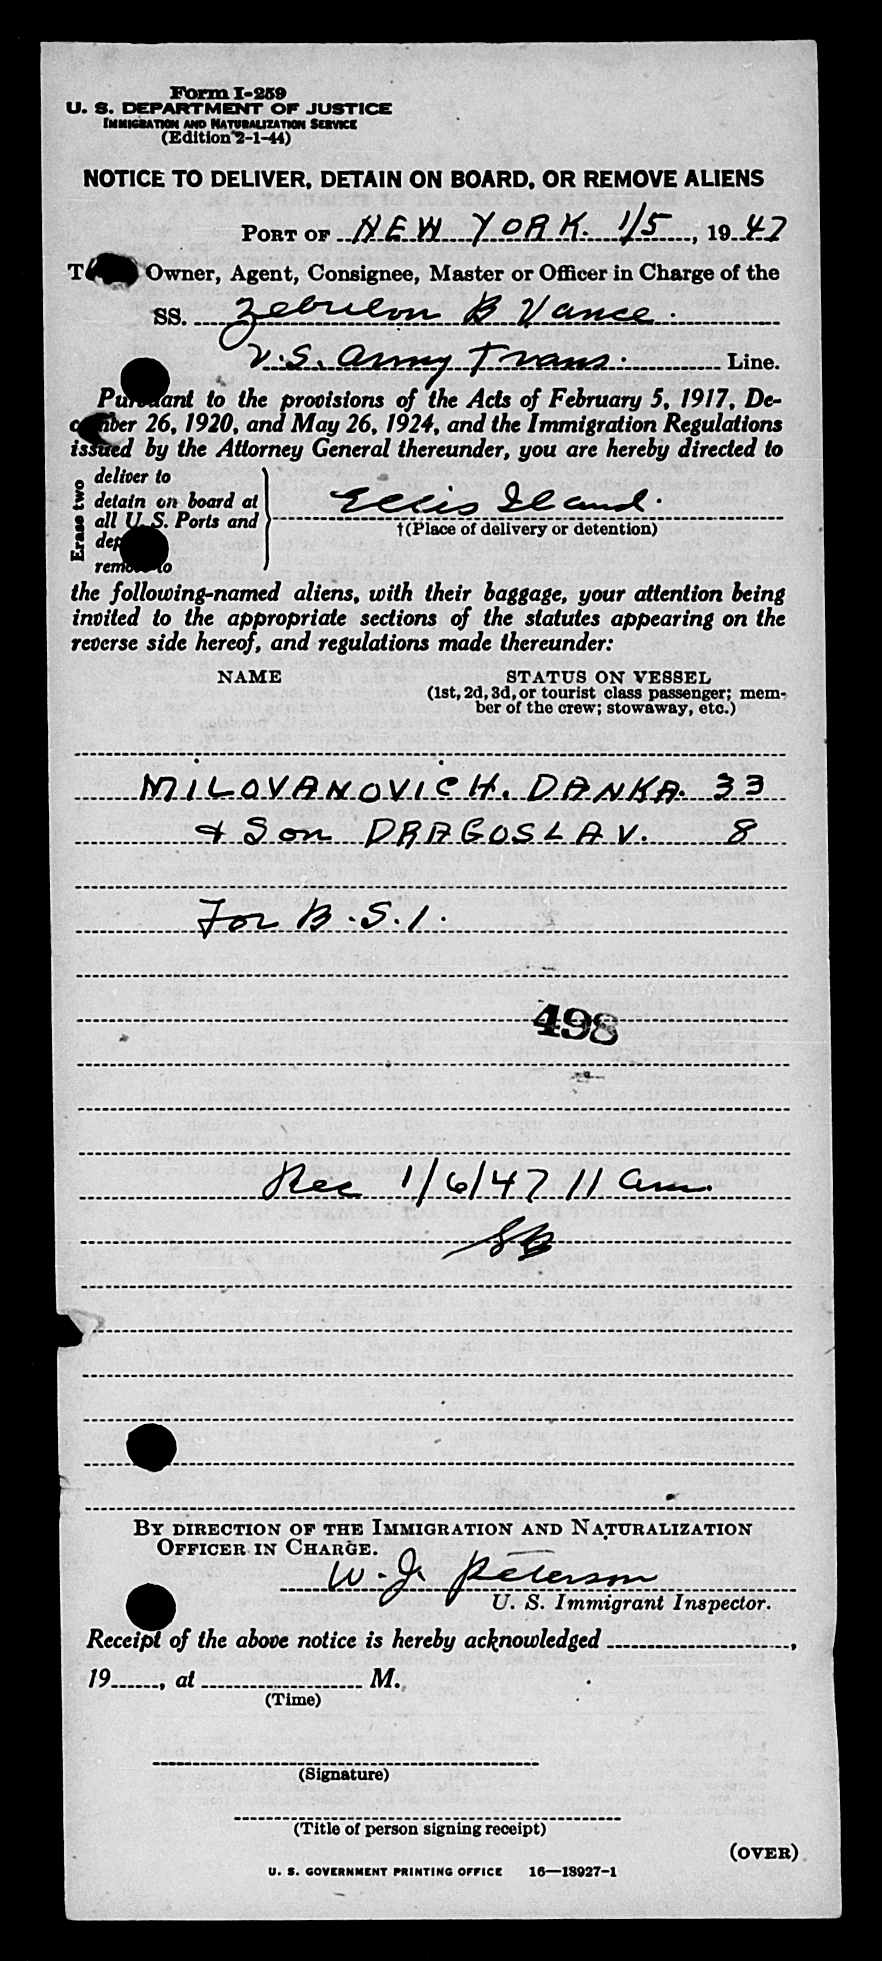 Form I-259
U. S. DEPARTMENT OF JUSTICE
IMMIGRATION AND NATURALIZATION SERVICE
(Edition 2-1-44)
NOTICE TO DELIVER, DETAIN ON BOARD, OR REMOVE ALIENS
PORT OF NEW YORK. 1/5, 1947
Owner, Agent, Consignee, Master or Officer in Charge of the
SS. Zebulon B Vance.
U.S. Army Trans. Line.
Pursuant to the provisions of the Acts of February 5, 1917, De-
cember 26, 1920, and May 26, 1924, and the Immigration Regulations
issued by the Attorney General thereunder, you are hereby directed to
Erase two
deliver to
detain on board at
all U. S. Ports and
remove to
Ellis Iland.
†(Place of delivery or detention)
the following-named aliens, with their baggage, your attention being
invited to the appropriate sections of the statutes appearing on the
reverse side hereof, and regulations made thereunder:
NAME STATUS ON VESSEL
(1st, 2d, 3d, or tourist class passenger; mem-
ber of the crew; stowaway, etc.)
MILOVANOVICH. DANKA. 33
+ Son DRAGOSLAV. 8
For B.S.I.
498
Rec 1/6/47 11 am.
BY DIRECTION OF THE IMMIGRATION AND NATURALIZATION
OFFICER IN CHARGE.
W. J. Peterson
U. S. Immigrant Inspector.
Receipt of the above notice is hereby acknowledged ,
19 , at M.
(Time)
(Signature)
(Title of person signing receipt)
(OVER)
U. S. GOVERNMENT PRINTING OFFICE 16—18927-1